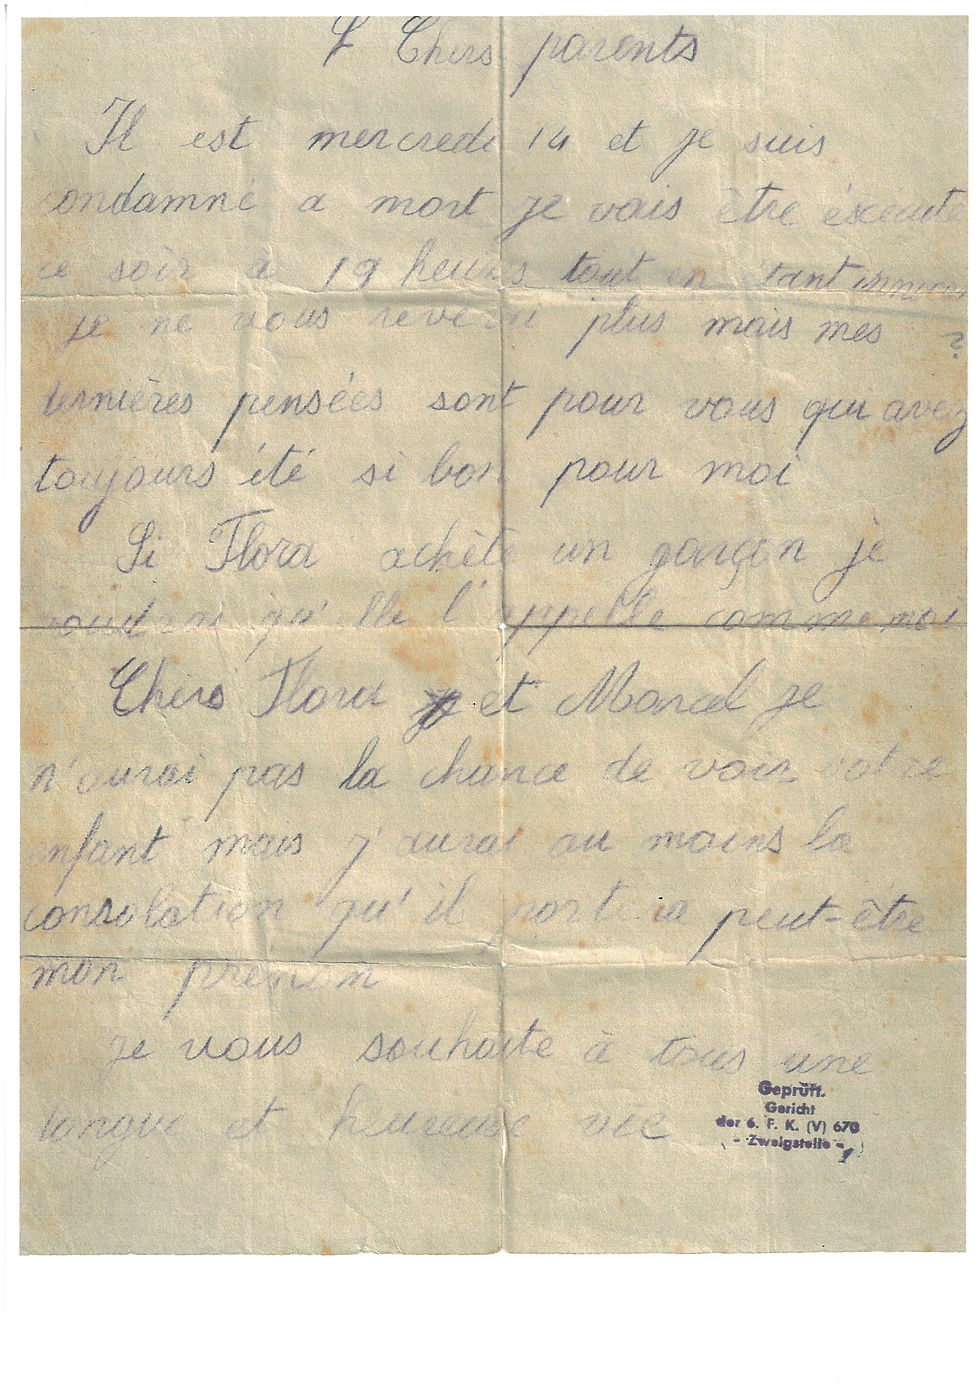 Chers parents
Il est mercredi 14 et je suis
condamné a mort je vais être éxécuté
ce soir à 19 heures tout en étant innocent
je ne vous reverai plus mais mes
dernières pensées sont pour vous qui avez
toujours été si bon pour moi
Si Flora achète un garçon je
voudrai qu'elle l'appelle comme moi
Chers Flora et Marcel je
n'aurai pas la chance de voir votre
enfant mais j'aurai au moins la
consolation qu'il portera peut-être
mon prenom
je vous souhaite à tous une
longue et heureuse vie
Geprüft.
Gericht
der 6. F. K. (V) 670
(- Zweigstelle -)